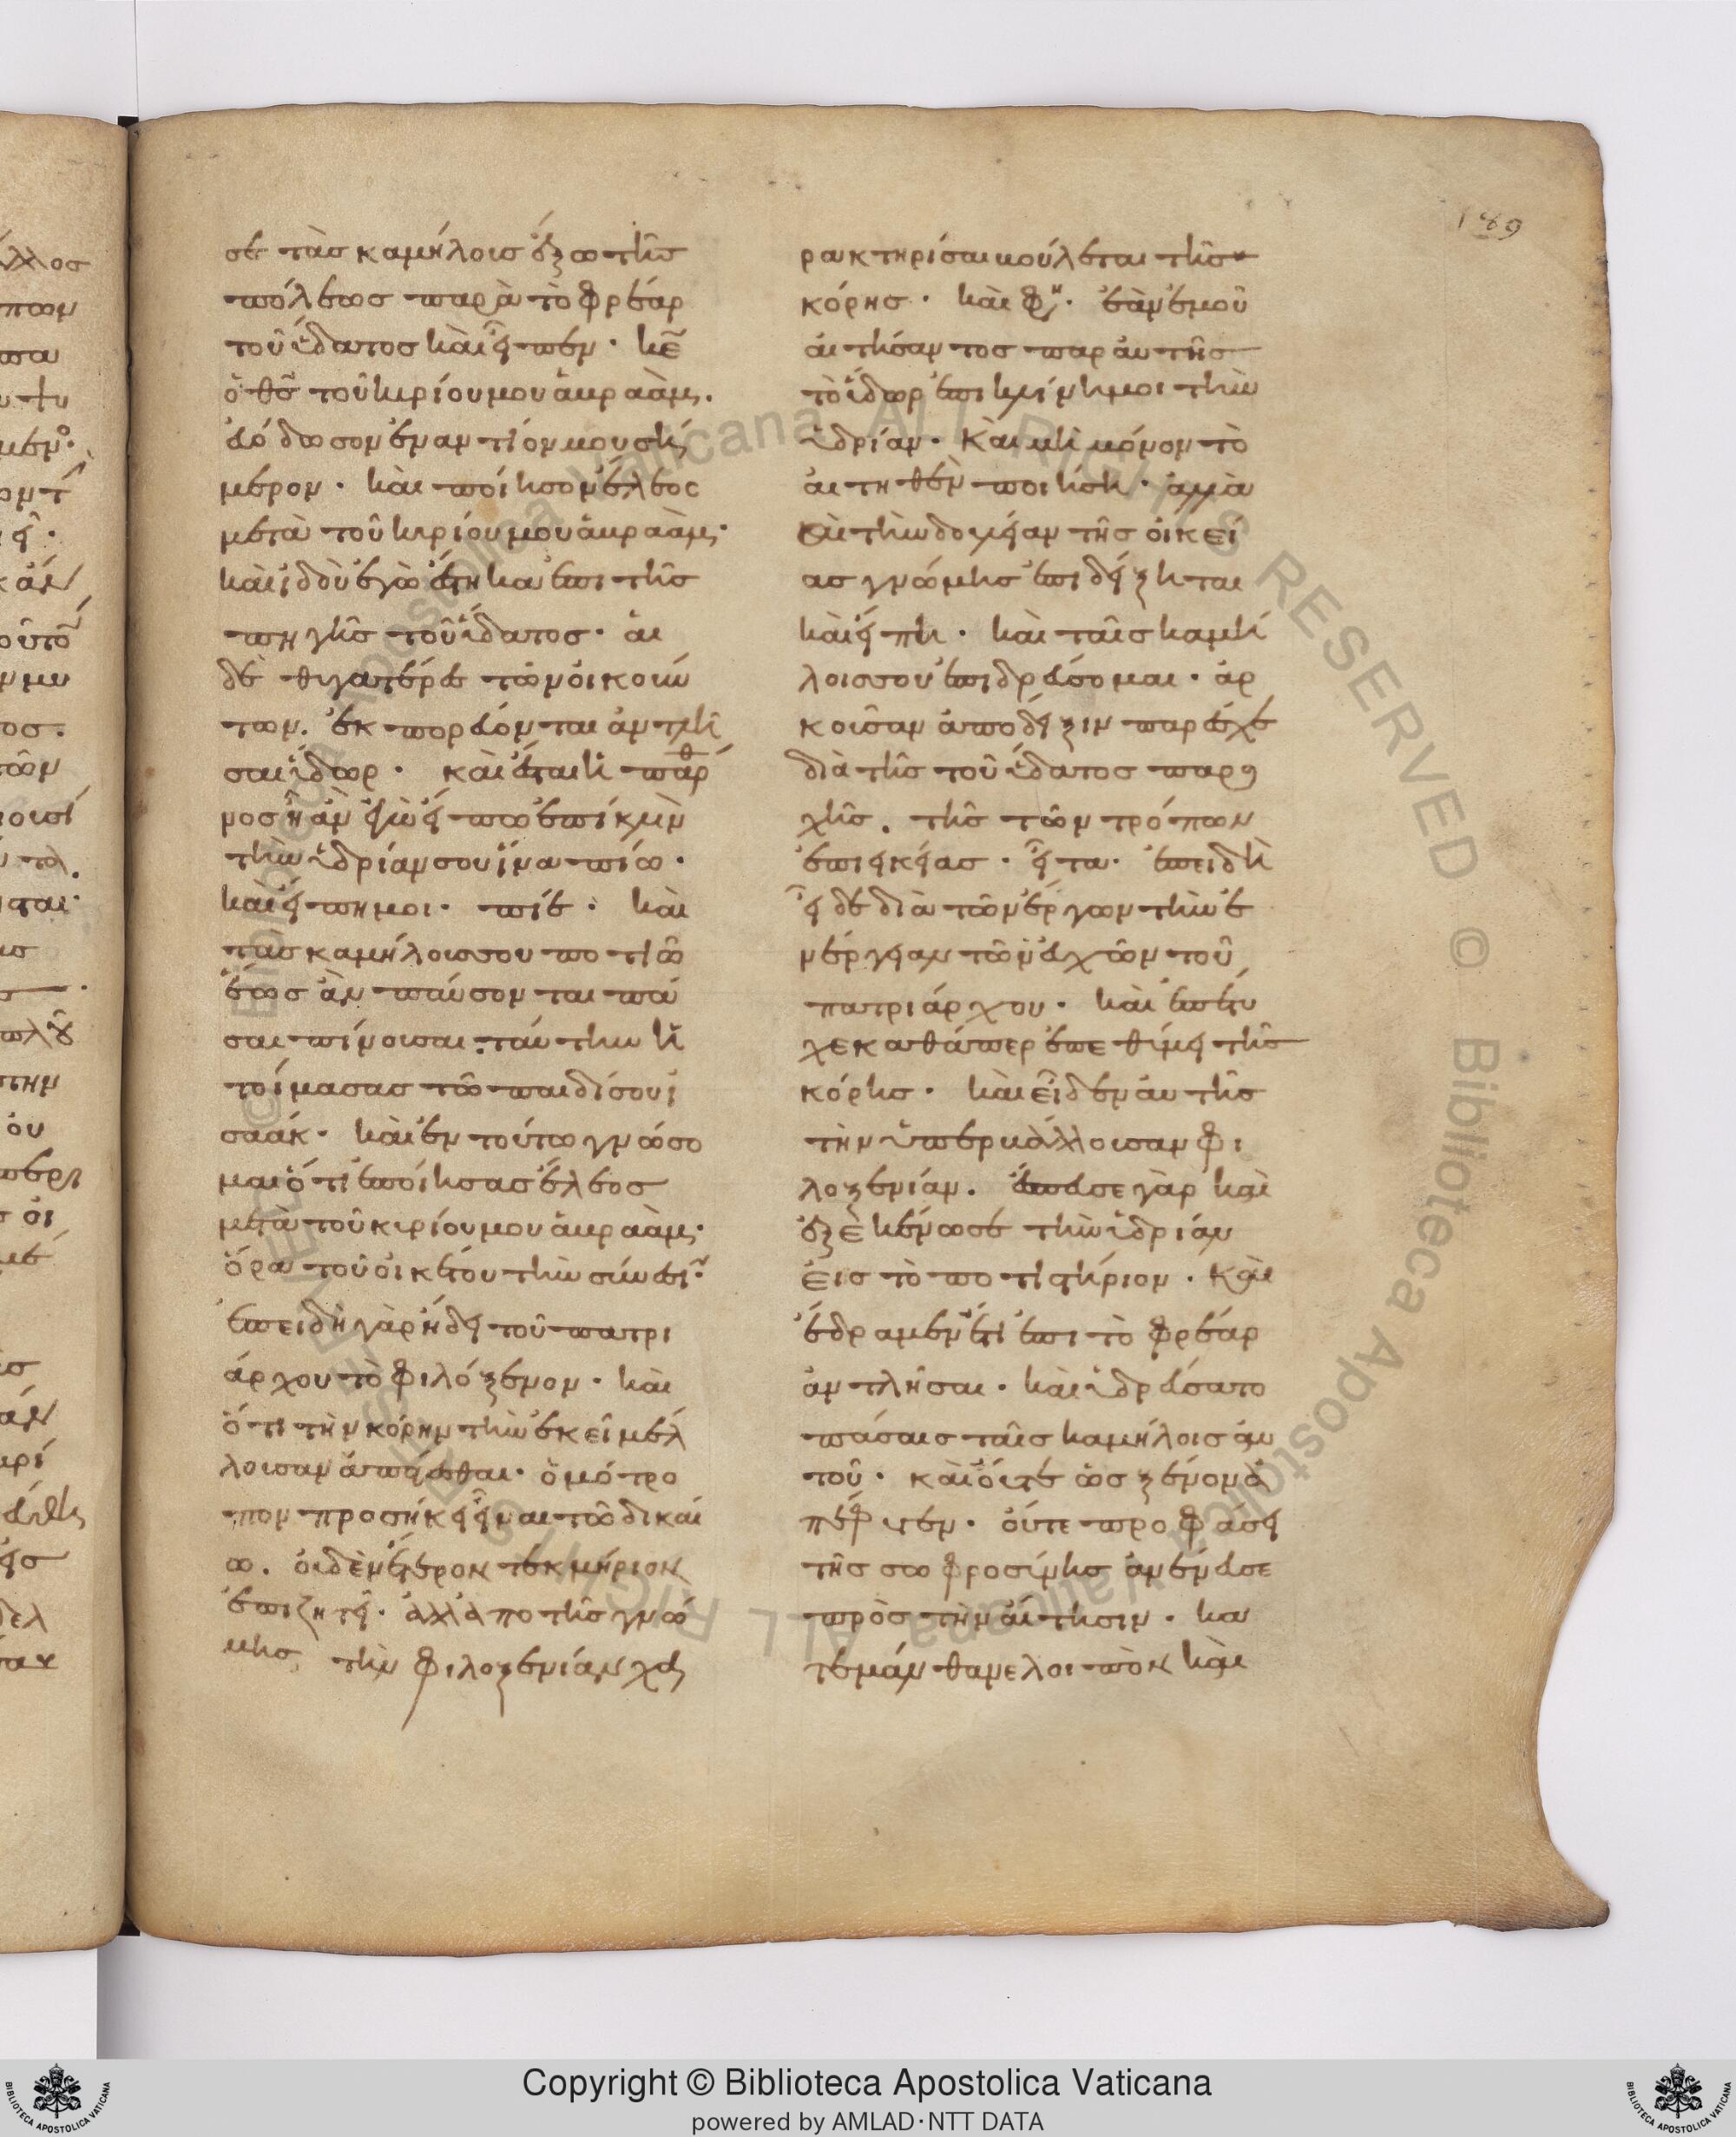 189
σε τὰσ καμήλουσ ἔξω τῆσ
πόλεωσ παρὰ τὸ φρέαρ
τοῦ ὕδατοσ καὶ εἶπεν · κε̄
ὁ θσ̄ τοῦ κυρίου μου ἁβραὰμ ·
εὐόδωσον ἐναντίον μου σή
μερον · καὶ ποίησον ἔλεοσ
μετὰ τοῦ κυρίου μου ἁβραὰμ ·
καὶ ἰδοὺ ἐγὼ ἕστηκα ἐπι τῆσ
πηγῆσ τοῦ ὕδατοσ · ἁι
δὲ θυγατέρεσ τῶν ὀικούν
των . ἐκπορεύονται ἀντλῆ
σαι ὕδωρ · καὶ ἔσται ἡ παρθέ
νοσ ἧ ἂν ἐγὼ εἴπω ἐπίκλινὸν
τὴν ὑδρίαν σου ἵνα πίω ·
καὶ εἴπη μοι · πίε · καὶ
τὰσ καμήλουσ σου ποτιῶ
ἕωσ ἂν παύσονται πᾶ
σαι πίνουσαι . ταύτην ἡ
τοίμασασ τῶ παιδί σου ἰ
σαάκ · καὶ ἐν τούτω γνώσο
μαι ὅτι ἐποίησασ ἔλεοσ
μετὰ τοῦ κυρίου μου ἁβραάμ ·
ὅρα τοῦ οἰκέτου τὴν σύνεσιν ·
ἐπειδὴ γὰρ ἤδει τοῦ πατρι
άρχου τὸ φιλόξενον · καὶ
ὅτι τὴν κόρην τὴν ἐκεῖ μέλ
λουσαν ἄπάγεσθαι · ὁμότρο
πον προσήκει εἶναι τῶ δικαί
ω . ὀυδὲν ἕτερον τεκμήριον
ἐπιζητεῖ · ἀλλ' ἀπο τῆσ γνώ
μησ τὴν φιλοξενίαν χα
ρακτηρίσαι βούλεται τῆσ
κόρησ · καὶ φησιν · ἐὰν ἐμοῦ
ἀιτήσαντοσ παρ ἀυτῆσ
τὸ ὕδωρ ἐπικλίνη μοι τὴν
ὑδρίαν · καὶ μὴ μόνον τὸ
ἀιτηθὲν ποιήση · ἀλλὰ
καὶ τὴν δοψίλειαν τῆσ ὀικεί
ασ γνώμησ ἐπιδείξηται
καὶ εἴπη · καὶ ταῖσ καμή
λοισ σου ὑδρεύσομαι · ἀρ
κοῦσαν ἀπόδειξιν παρέχε
διὰ τῆσ τοῦ ὕδατοσ παρο
χῆσ . τῆσ τῶν τρόπων
ἐπιεικείασ · εἶτα · ἐπειδὴ
εἶδε διὰ τῶν ἔργων τὴν ἐ
νέργειαν τῶν εὐχῶν τοῦ
πατριάρχου · καὶ ἐπέτυ
χε καθάπερ ἐπεθύμει τῆσ
κόρησ · καὶ εἶδεν ἀυτῆσ
τὴν ὑπερβάλλουσαν φι
λοξενίαν . ἔσπευσε γὰρ καὶ
ἐξεκένωσε τὴν ὑδρίαν
ἐισ τὸ ποτιστήριον . καὶ
ἔδραμεν ἔτι ἐπι τὸ φρέαρ
ἀντλῆσαι · καὶ ὑδρεύσατο
πάσαισ ταῖσ καμήλοισ ἀυ
τοῦ · καὶ ὄυτε ὡσ ξένον ἀ
πέπεμψεν · ὄυτε προφάσει
τῆσ σωφροσύνησ ἀνένευσε
πρὸσ τὴν αἴτησιν · κα
τεμάνθανε λοιπὸν καὶ
Copyright © Biblioteca Apostolica Vaticana
powered by AMLAD·NTT DATA